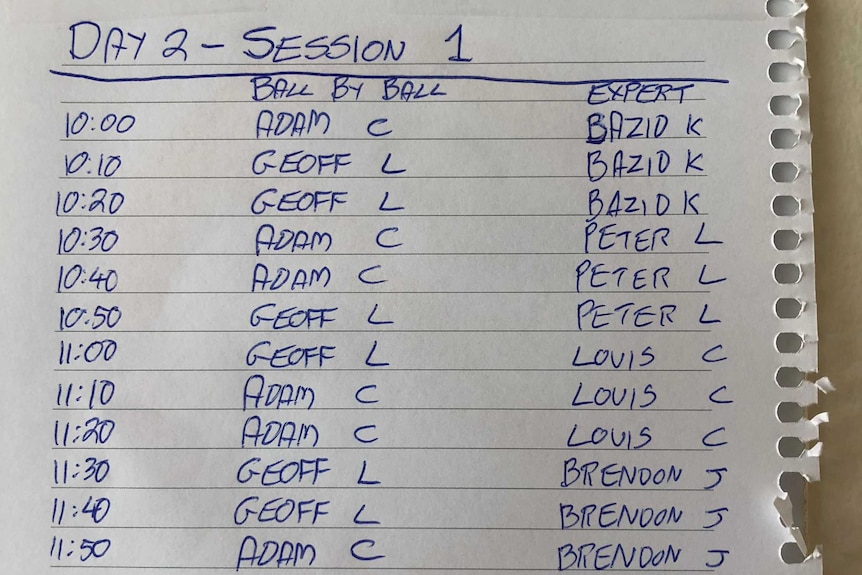 DAY 2 - SESSION 1
BALL BY BALL EXPERT
10:00 ADAM C BAZID K
10:10 GEOFF L BAZID K
10:20 GEOFF L BAZID K
10:30 ADAM C PETER L
10:40 ADAM C PETER L
10:50 GEOFF L PETER L
11:00 GEOFF L LOUIS C
11:10 ADAM C LOUIS C
11:20 ADAM C LOUIS C
11:30 GEOFF L BRENDON J
11:40 GEOFF L BRENDON J
11:50 ADAM C BRENDON J